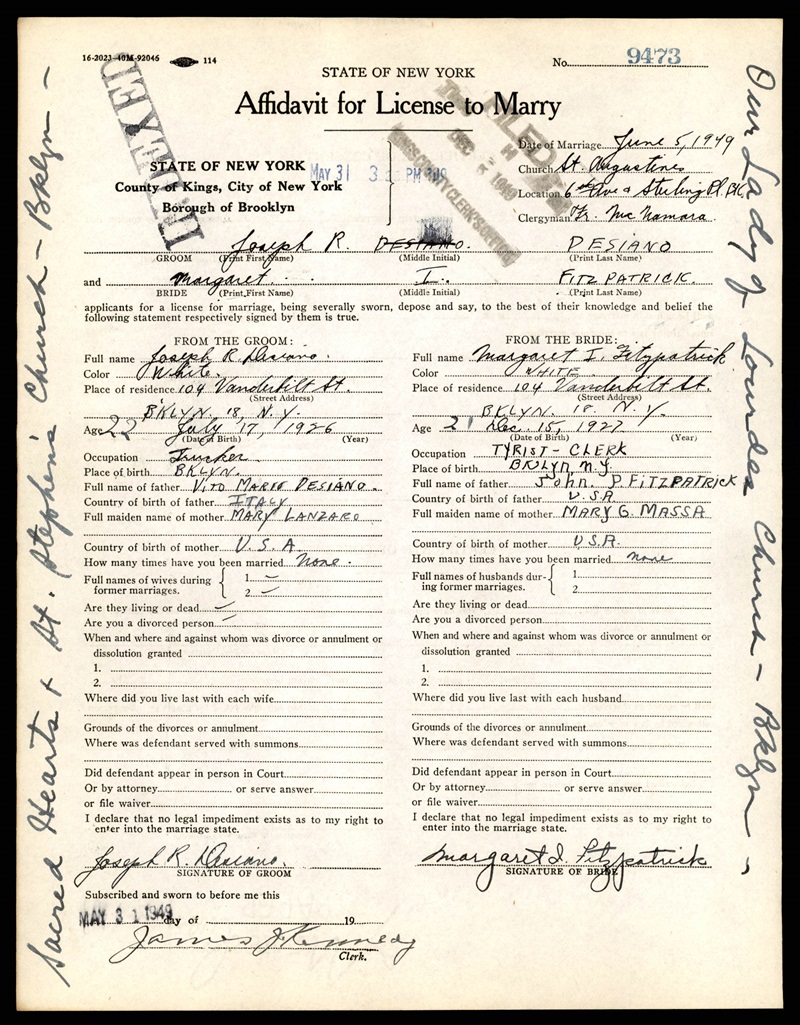 16-2023-40M-92046 114
No. 9473
STATE OF NEW YORK
Affidavit for License to Marry
INDEXED
FILED
STATE OF NEW YORK
County of Kings, City of New York
Borough of Brooklyn
MAY 31 3 PM
Date of Marriage June 5, 1949
Church St. Augustines
Location 6th Ave & Sterling Pl. BK
Clergyman Fr. McNamara
Joseph R. DESIANO. DESIANO
GROOM (Print First Name) (Middle Initial) (Print Last Name)
and Margaret I. FITZPATRICK.
BRIDE (Print First Name) (Middle Initial) (Print Last Name)
applicants for a license for marriage, being severally sworn, depose and say, to the best of their knowledge and belief the
following statement respectively signed by them is true.
FROM THE GROOM:
Full name Joseph R. Desiano.
Color White.
Place of residence 104 Vanderbilt St.
(Street Address)
BKLYN, 18, N.Y.
Age 22 July 17, 1926
(Date of Birth) (Year)
Occupation Trucker
Place of birth BKLYN.
Full name of father VITO MARIE DESIANO.
Country of birth of father ITALY
Full maiden name of mother MARY LANZARO
Country of birth of mother U.S.A.
How many times have you been married None.
Full names of wives during
former marriages. { 1. —
2. —
Are they living or dead —
Are you a divorced person —
When and where and against whom was divorce or annulment or
dissolution granted
1.
2.
Where did you live last with each wife
Grounds of the divorces or annulment
Where was defendant served with summons
Did defendant appear in person in Court
Or by attorney or serve answer
or file waiver
I declare that no legal impediment exists as to my right to
enter into the marriage state.
Joseph R. Desiano.
SIGNATURE OF GROOM
Subscribed and sworn to before me this
MAY 31 1949 day of 19
James J. Kennedy
Clerk.
FROM THE BRIDE:
Full name Margaret I. Fitzpatrick
Color WHITE
Place of residence 104 Vanderbilt St.
(Street Address)
BKLYN. 18. N.Y.
Age 21 Dec. 15, 1927
(Date of Birth) (Year)
Occupation TYPIST - CLERK
Place of birth BKLYN, N.Y.
Full name of father John. P. FITZPATRICK
Country of birth of father U.S.A
Full maiden name of mother MARY G. MASSA
Country of birth of mother U.S.A.
How many times have you been married none
Full names of husbands dur-
ing former marriages. { 1.
2.
Are they living or dead
Are you a divorced person
When and where and against whom was divorce or annulment or
dissolution granted
1.
2.
Where did you live last with each husband
Grounds of the divorces or annulment
Where was defendant served with summons
Did defendant appear in person in Court
Or by attorney or serve answer
or file waiver
I declare that no legal impediment exists as to my right to
enter into the marriage state.
Margaret I. Fitzpatrick
SIGNATURE OF BRIDE
Sacred Hearts & St. Stephen's Church - Bklyn -
Our Lady of Lourdes Church - Bklyn -